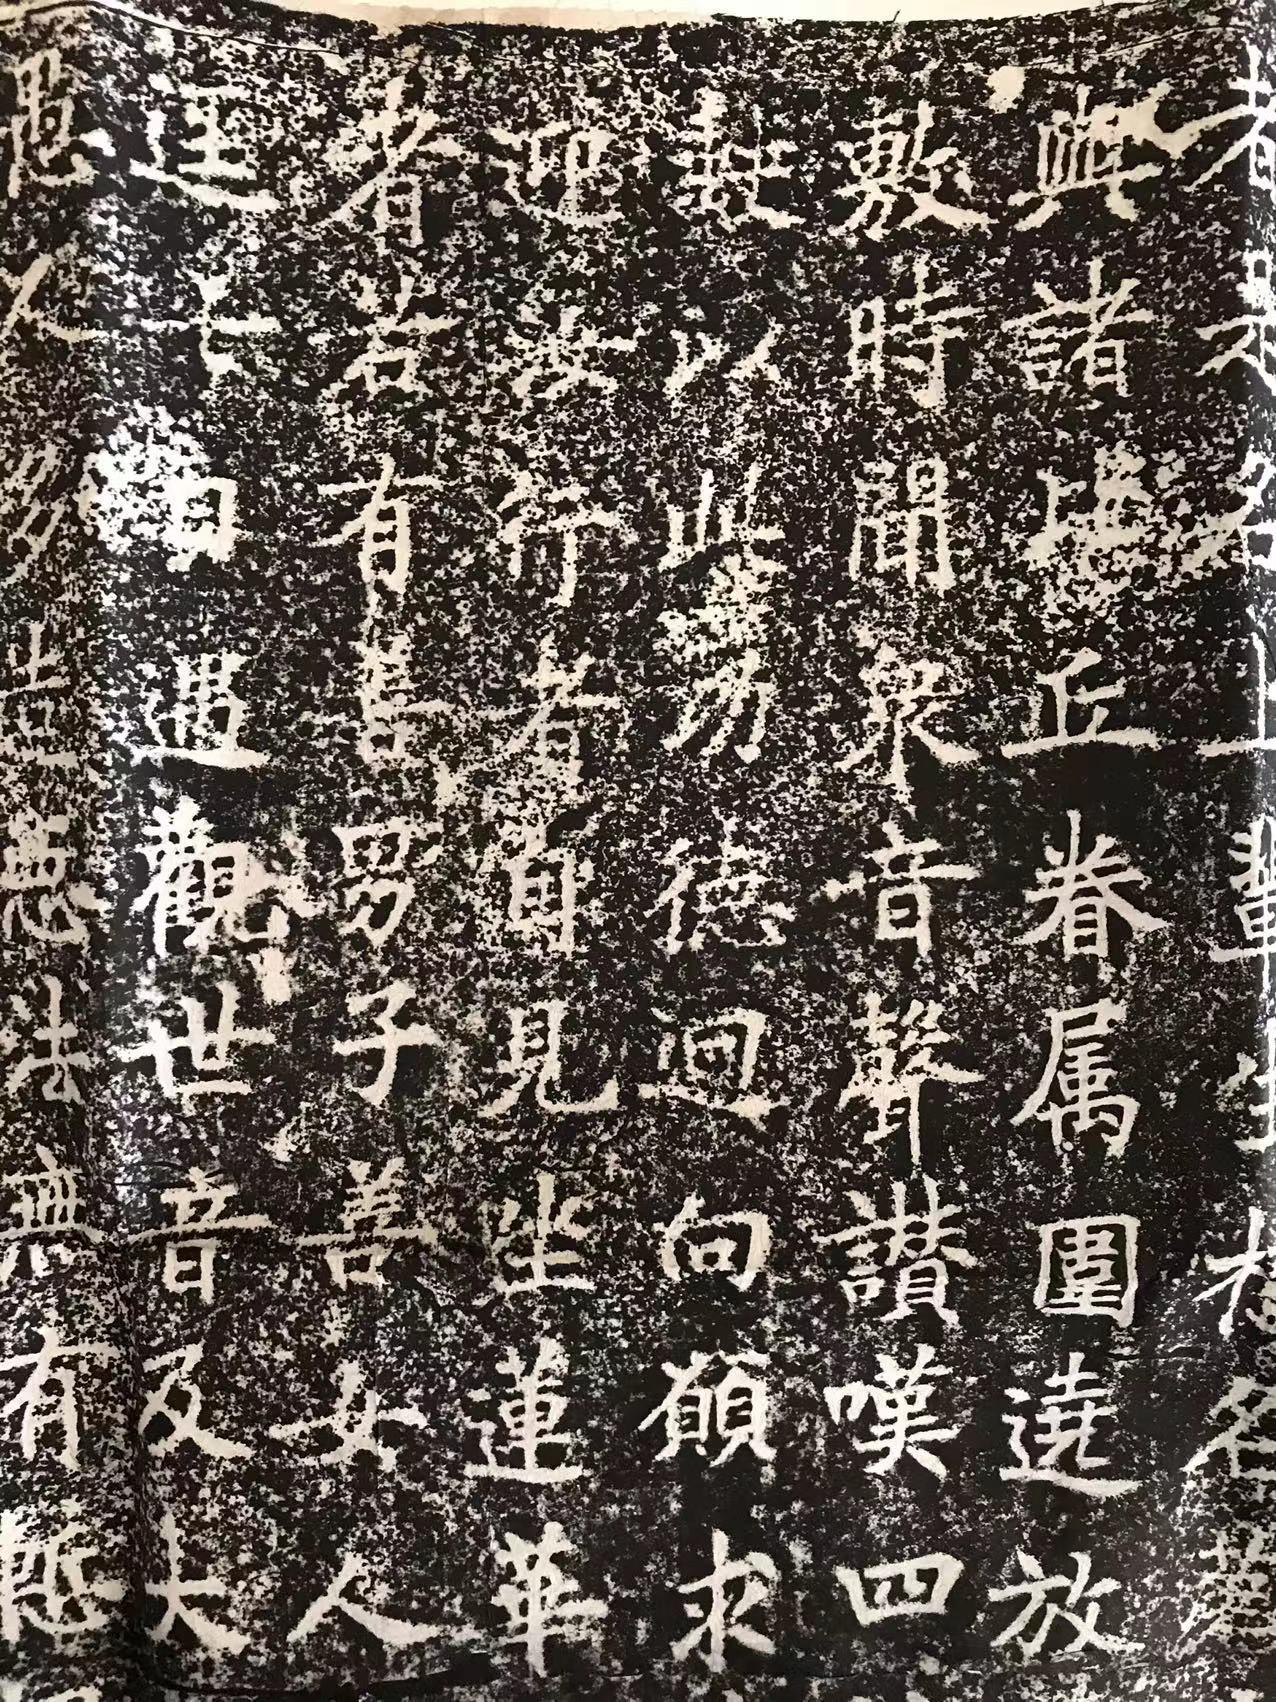 者
與諸比丘眷属圍遶放
敷時聞衆音聲讃嘆四
數以此功德迴向願求
迎汝行者自見坐蓮華
者若有善男子善女人
七日遇觀世音及大
愚人多造惡法無有慙